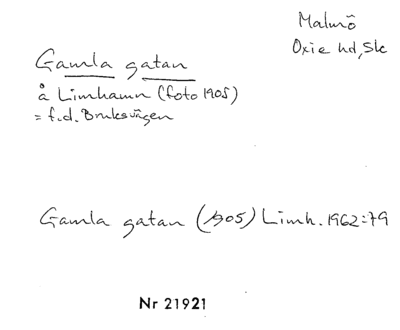 Malmö
Oxie hd, Sk
Gamla gatan
å Limhamn (foto 1905)
= f.d. Bruksvägen
Gamla gatan (1905) Limh. 1962:79
Nr 21921